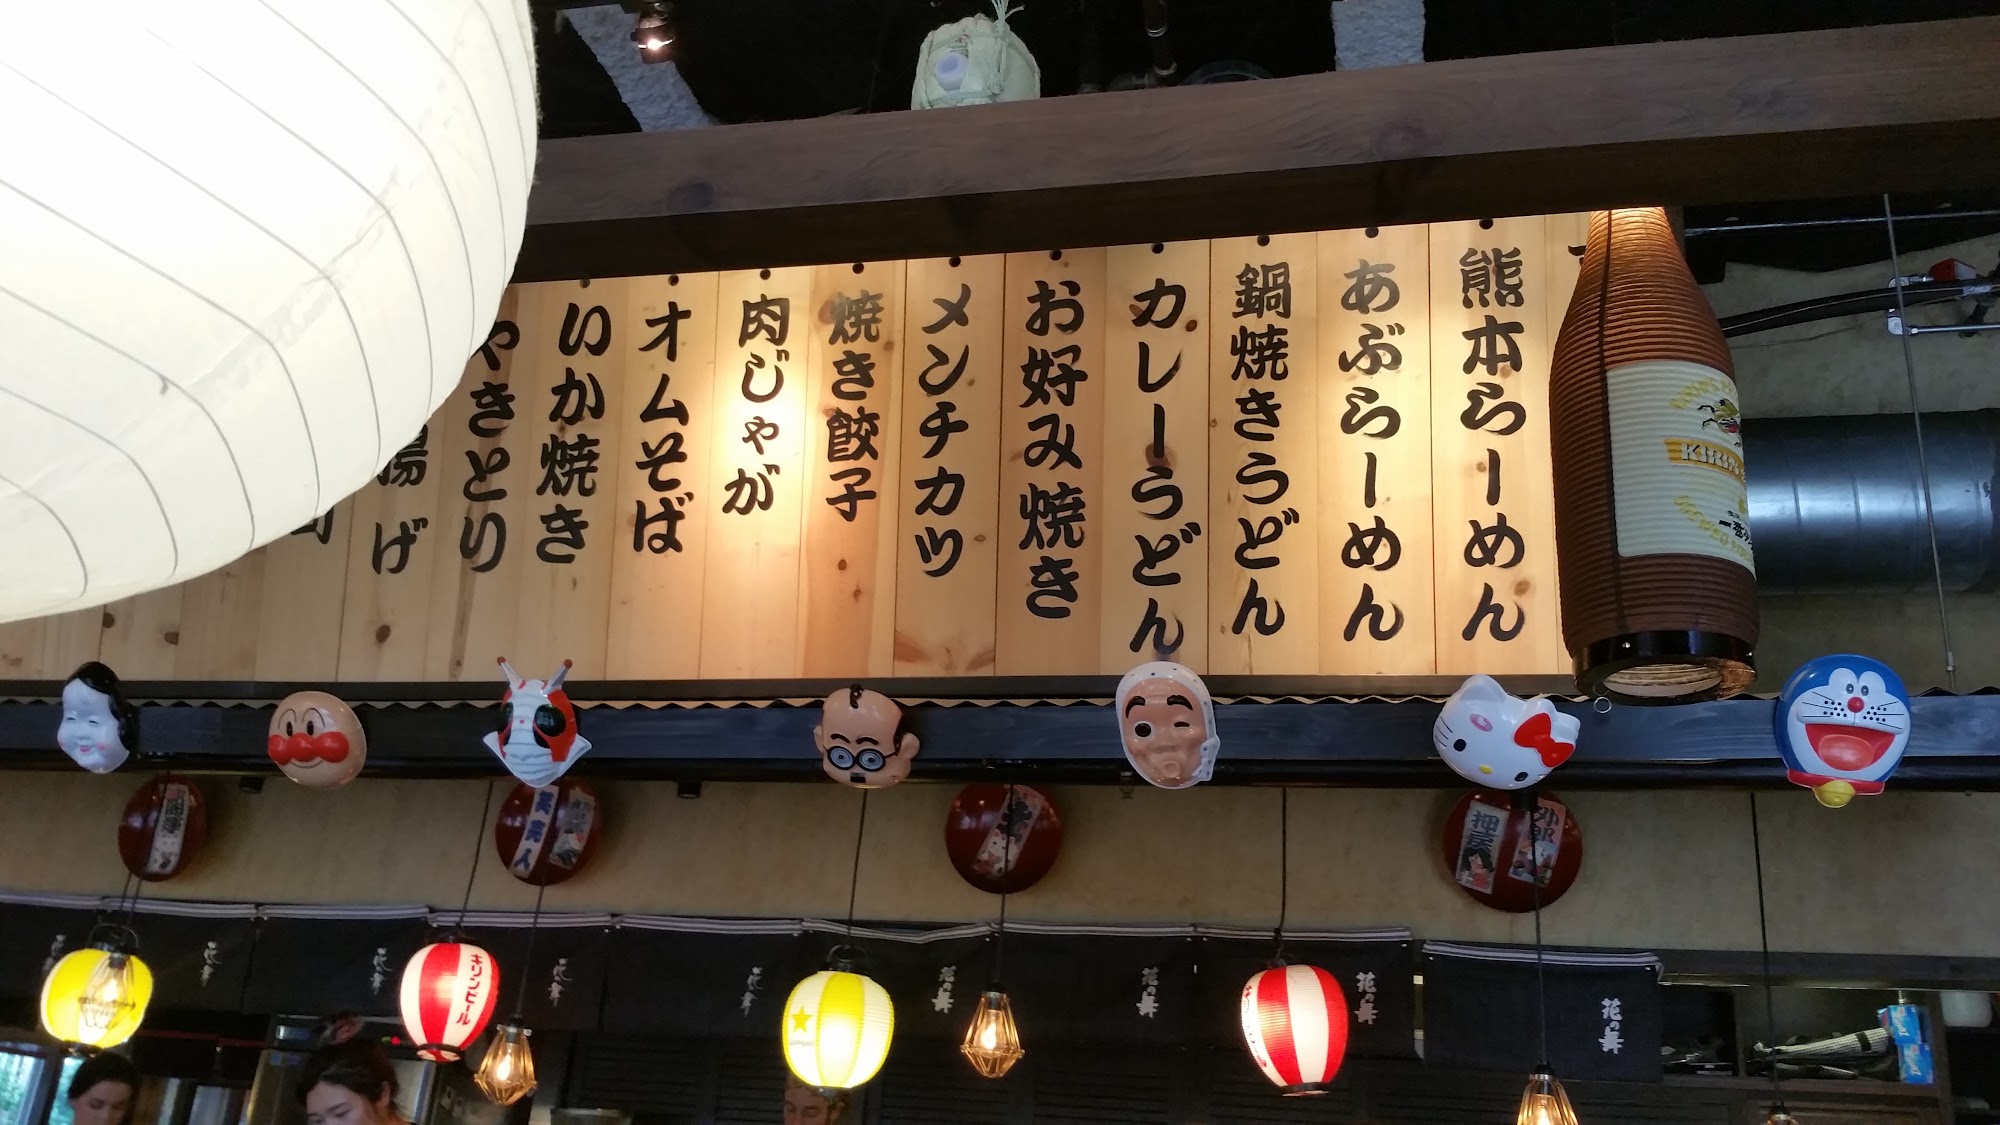 熊本らーめん
あぶらーめん
鍋焼きうどん
カレーうどん
お好み焼き
メンチカツ
焼き餃子
肉じゃが
オムそば
いか焼き
やきとり
揚げ
KIRIN
押戻
笑売人
キリンビール
花の舞
花の舞
花の舞
花の舞
花の舞